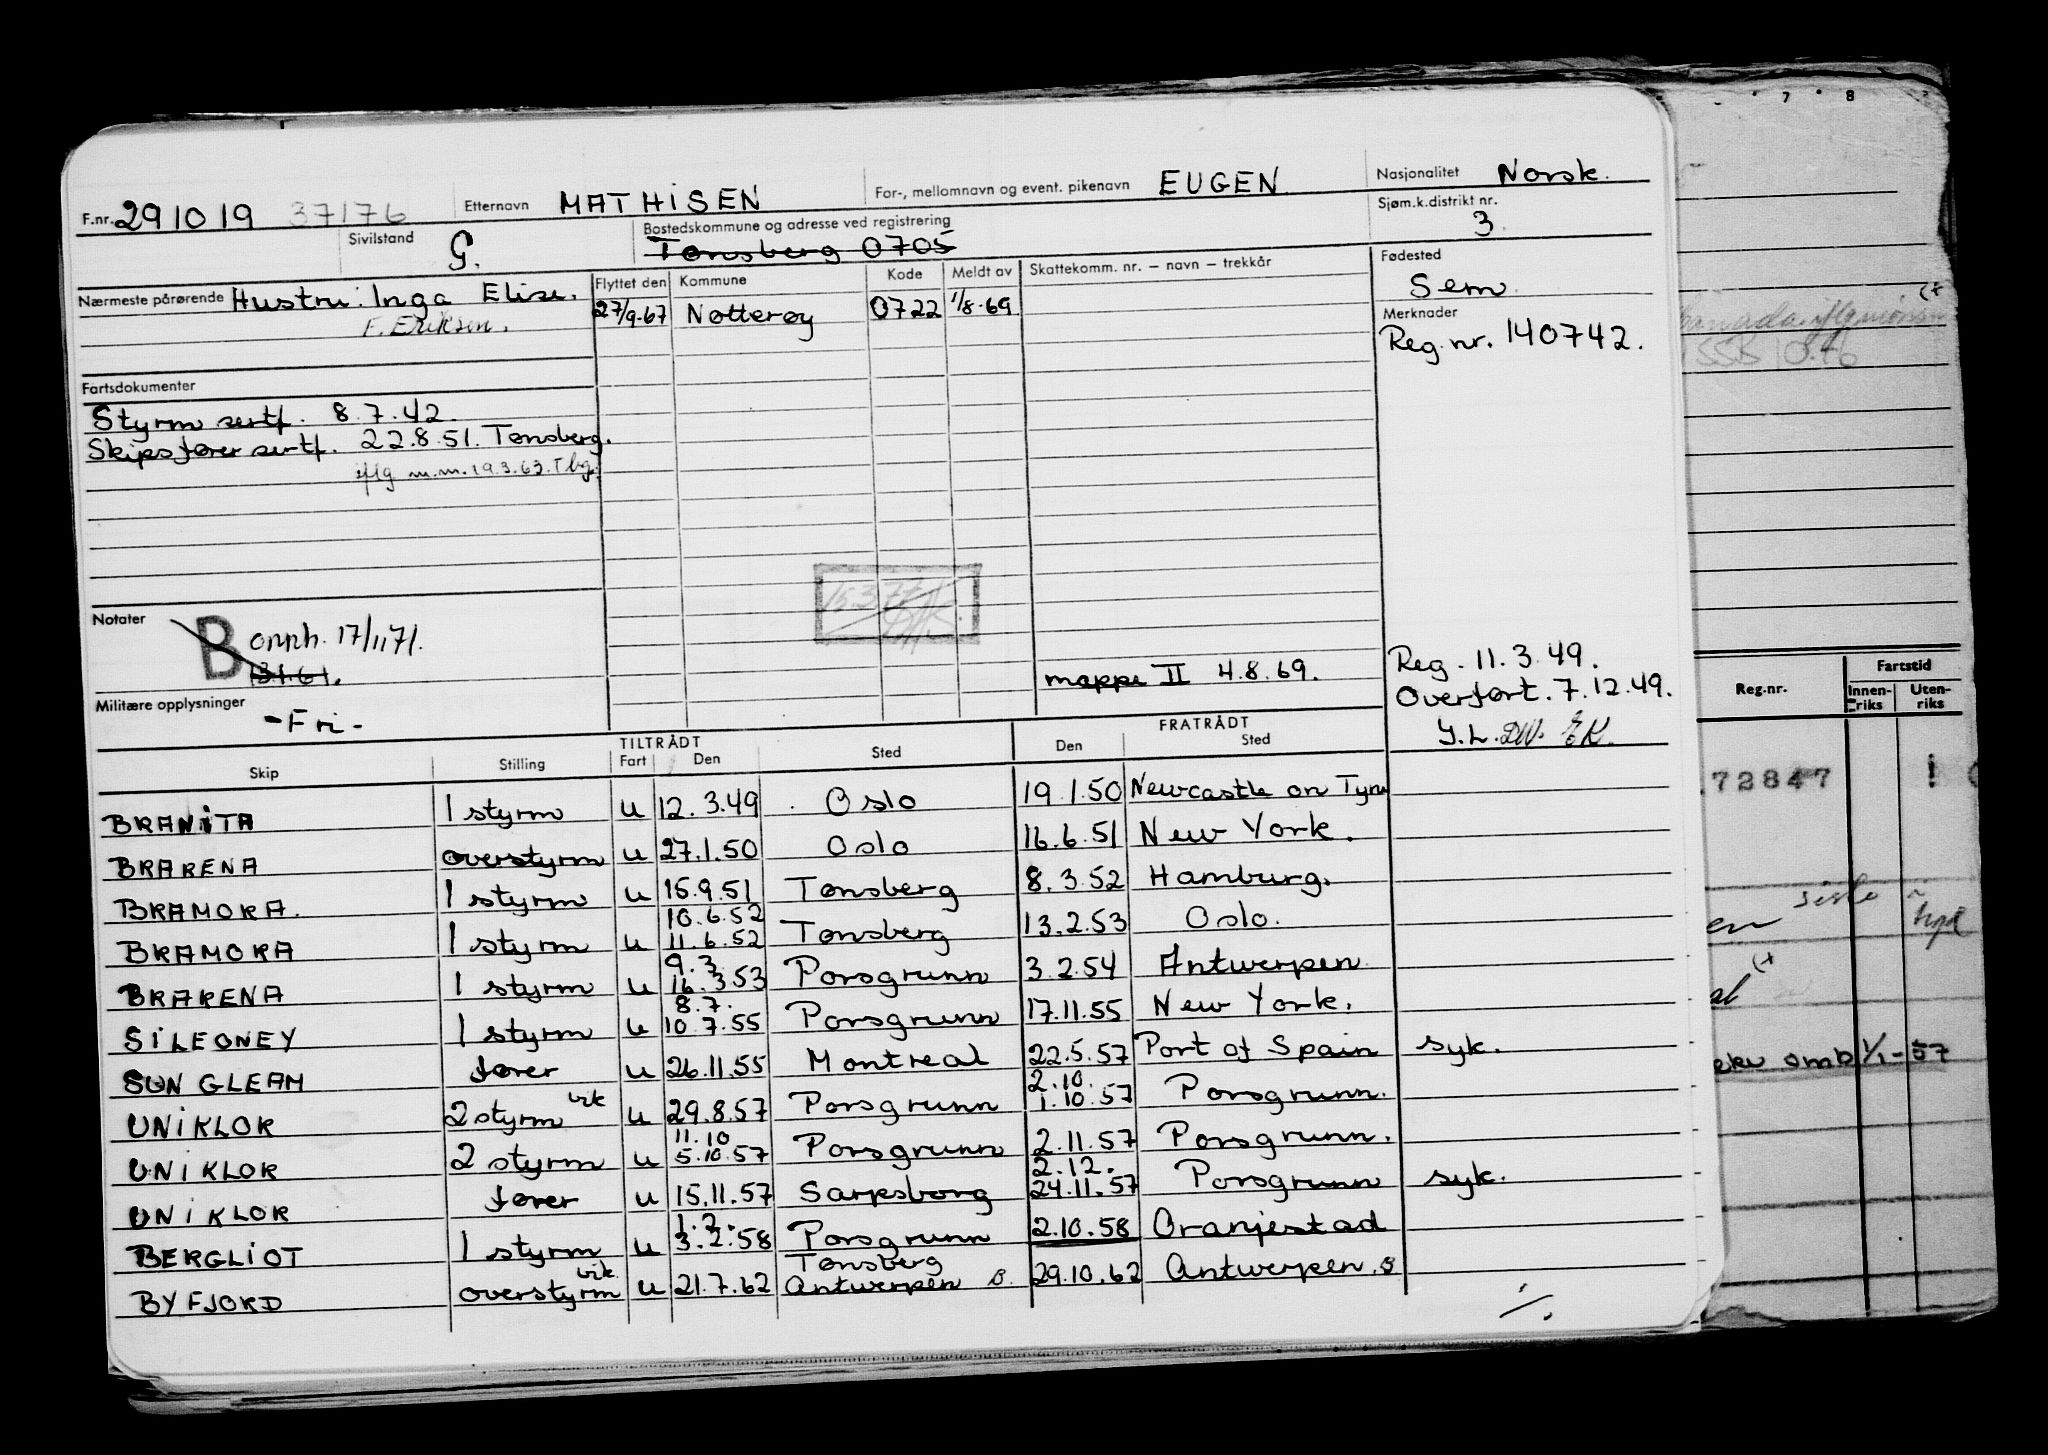 F.nr. 291019 37176 Etternavn MATHISEN For-, mellomnavn og event. pikenavn EUGEN Nasjonalitet Norsk.
Sivilstand G. Bostedskommune og adresse ved registrering Tønsberg 0705 Sjøm.k.distrikt nr. 3
Nærmeste pårørende Hustru: Inga Elise.
F. Eriksen.
Flyttet den Kommune Kode Meldt av Skattekomm. nr. – navn – trekkår
27/9-67 Nøtterøy 0722 1/8-69
Fødested
Sem
Merknader
Reg.nr. 140742.
Fartsdokumenter
Styrm sertf. 8.7.42.
Skipsfører sertf. 22.8.51. Tønsberg.
iflg m.m. 19.3.63. Tbg.
Notater
B opph. 17/11 71.
13.1.61.
15.3.77
mappe II 4.8.69.
Reg. 11.3.49.
Overført. 7.12.49.
Y.L. DW. EK.
Militære opplysninger
- Fri -
TILTRÅDT FRATRÅDT
Skip Stilling Fart Den Sted Den Sted
BRANITA 1 styrm u 12.3.49 Oslo 19.1.50 Newcastle on Tyne
BRARENA overstyrm u 27.1.50 Oslo 16.6.51 New York.
BRAMORA. 1 styrm u 15.9.51 Tønsberg 8.3.52 Hamburg.
10.6.52
BRAMORA 1 styrm u 11.6.52 Tønsberg 13.2.53 Oslo.
9.3.
BRARENA 1 styrm u 16.3.53 Porsgrunn 3.2.54 Antwerpen
8.7.
SILEONEY 1 styrm u 10.7.55 Porsgrunn 17.11.55 New York.
SUN GLEAM fører u 26.11.55 Montreal 22.5.57 Port of Spain syk.
2.10.
UNIKLOR 2 styrm vik u 29.8.57 Porsgrunn 1.10.57 Porsgrunn.
11.10
UNIKLOR 2 styrm u 5.10.57 Porsgrunn 2.11.57 Porsgrunn.
2.12.
UNIKLOR fører u 15.11.57 Sarpsborg 24.11.57 Porsgrunn syk.
1.2.
BERGLIOT 1 styrm u 3.2.58 Porsgrunn 2.10.58 Oranjestad
Tønsberg
BYFJORD overstyrm vik. u 21.7.62 Antwerpen B. 29.10.62 Antwerpen. B
./.
7 8
SSB 10.76
Reg.nr. Fartstid
Innen-riks Uten-riks
72847
siste
1/1-57